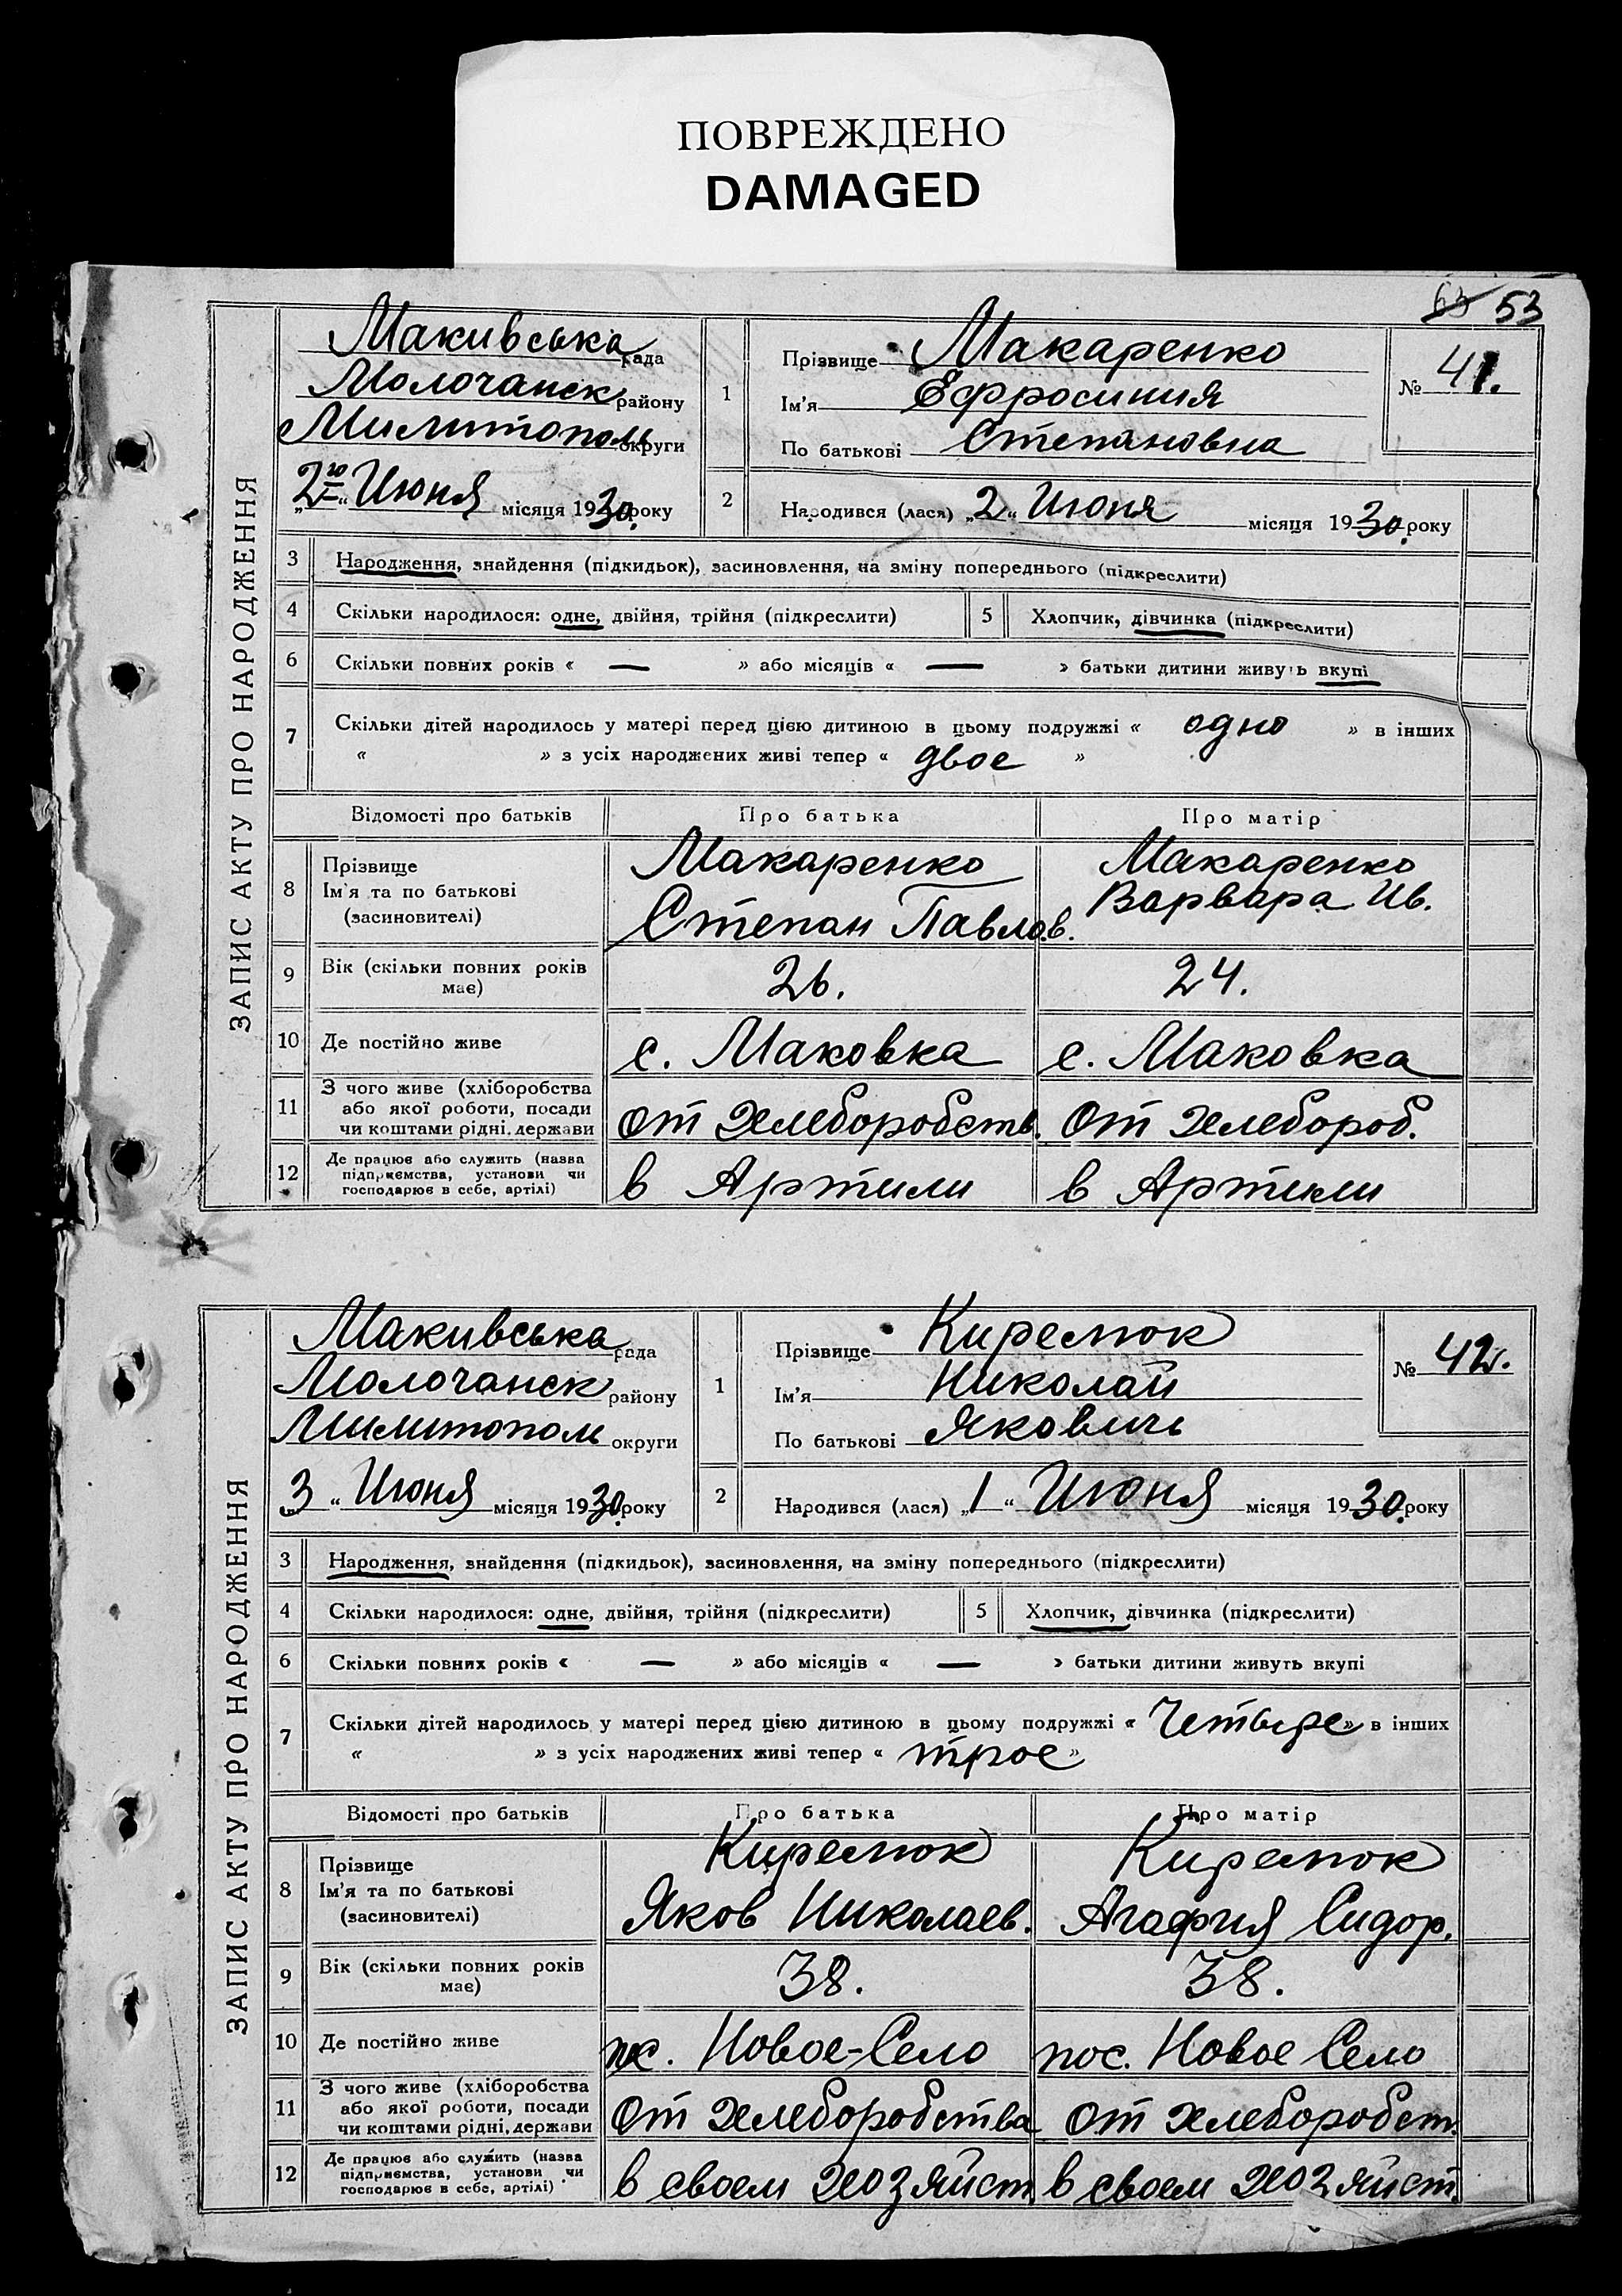 ПОВРЕЖДЕНО
DAMAGED
63 53
ЗАПИС АКТУ ПРО НАРОДЖЕННЯ
Макивська рада
Молочанск району
Милитопол округи
„2го“ Июня місяця 1930. року
1
Прізвище Макаренко
Ім'я Ефросиния
По батькові Степановна
№ 41.
2 Народився (лася) „2“ Июня місяця 1930. року
3 Народження, знайдення (підкидьок), засиновлення, на зміну попереднього (підкреслити)
4 Скільки народилося: одне, двійня, трійня (підкреслити) 5 Хлопчик, дівчинка (підкреслити)
6 Скільки повних років « — » або місяців « — » батьки дитини живуть вкупі
7 Скільки дітей народилось у матері перед цією дитиною в цьому подружжі « одно » в інших
« » з усіх народжених живі тепер « двое »
Відомості про батьків Про батька Про матір
8 Прізвище
Ім'я та по батькові
(засиновителі)
Макаренко
Степан Павлов.
Макаренко
Варвара Ив.
9 Вік (скільки повних років
має)
26. 24.
10 Де постійно живе с. Маковка с. Маковка
11 З чого живе (хліборобства
або якої роботи, посади
чи коштами рідні, держави
от Хлеборобств. от Хлебороб.
12 Де працює або служить (назва
підприємства, установи чи
господарює в себе, артілі)
в Артили в Артили
ЗАПИС АКТУ ПРО НАРОДЖЕННЯ
Макивська рада
Молочанск району
Милитопол округи
„3“ Июня місяця 1930. року
1
Прізвище Кирелюк
Ім'я Николай
По батькові Яковичь
№ 42.
2 Народився (лася) „1“ Июня місяця 1930. року
3 Народження, знайдення (підкидьок), засиновлення, на зміну попереднього (підкреслити)
4 Скільки народилося: одне, двійня, трійня (підкреслити) 5 Хлопчик, дівчинка (підкреслити)
6 Скільки повних років « — » або місяців « — » батьки дитини живуть вкупі
7 Скільки дітей народилось у матері перед цією дитиною в цьому подружжі « Четыре » в інших
« » з усіх народжених живі тепер « трое »
Відомості про батьків Про батька Про матір
8 Прізвище
Ім'я та по батькові
(засиновителі)
Кирелюк
Яков Николаев.
Кирелюк
Агафия Сидор.
9 Вік (скільки повних років
має)
38. 38.
10 Де постійно живе пос. Новое-Село пос. Новое Село
11 З чого живе (хліборобства
або якої роботи, посади
чи коштами рідні, держави
от Хлеборобства от Хлеборобст.
12 Де працює або служить (назва
підприємства, установи чи
господарює в себе, артілі)
в своем Хозяйст. в своем Хозяйст.